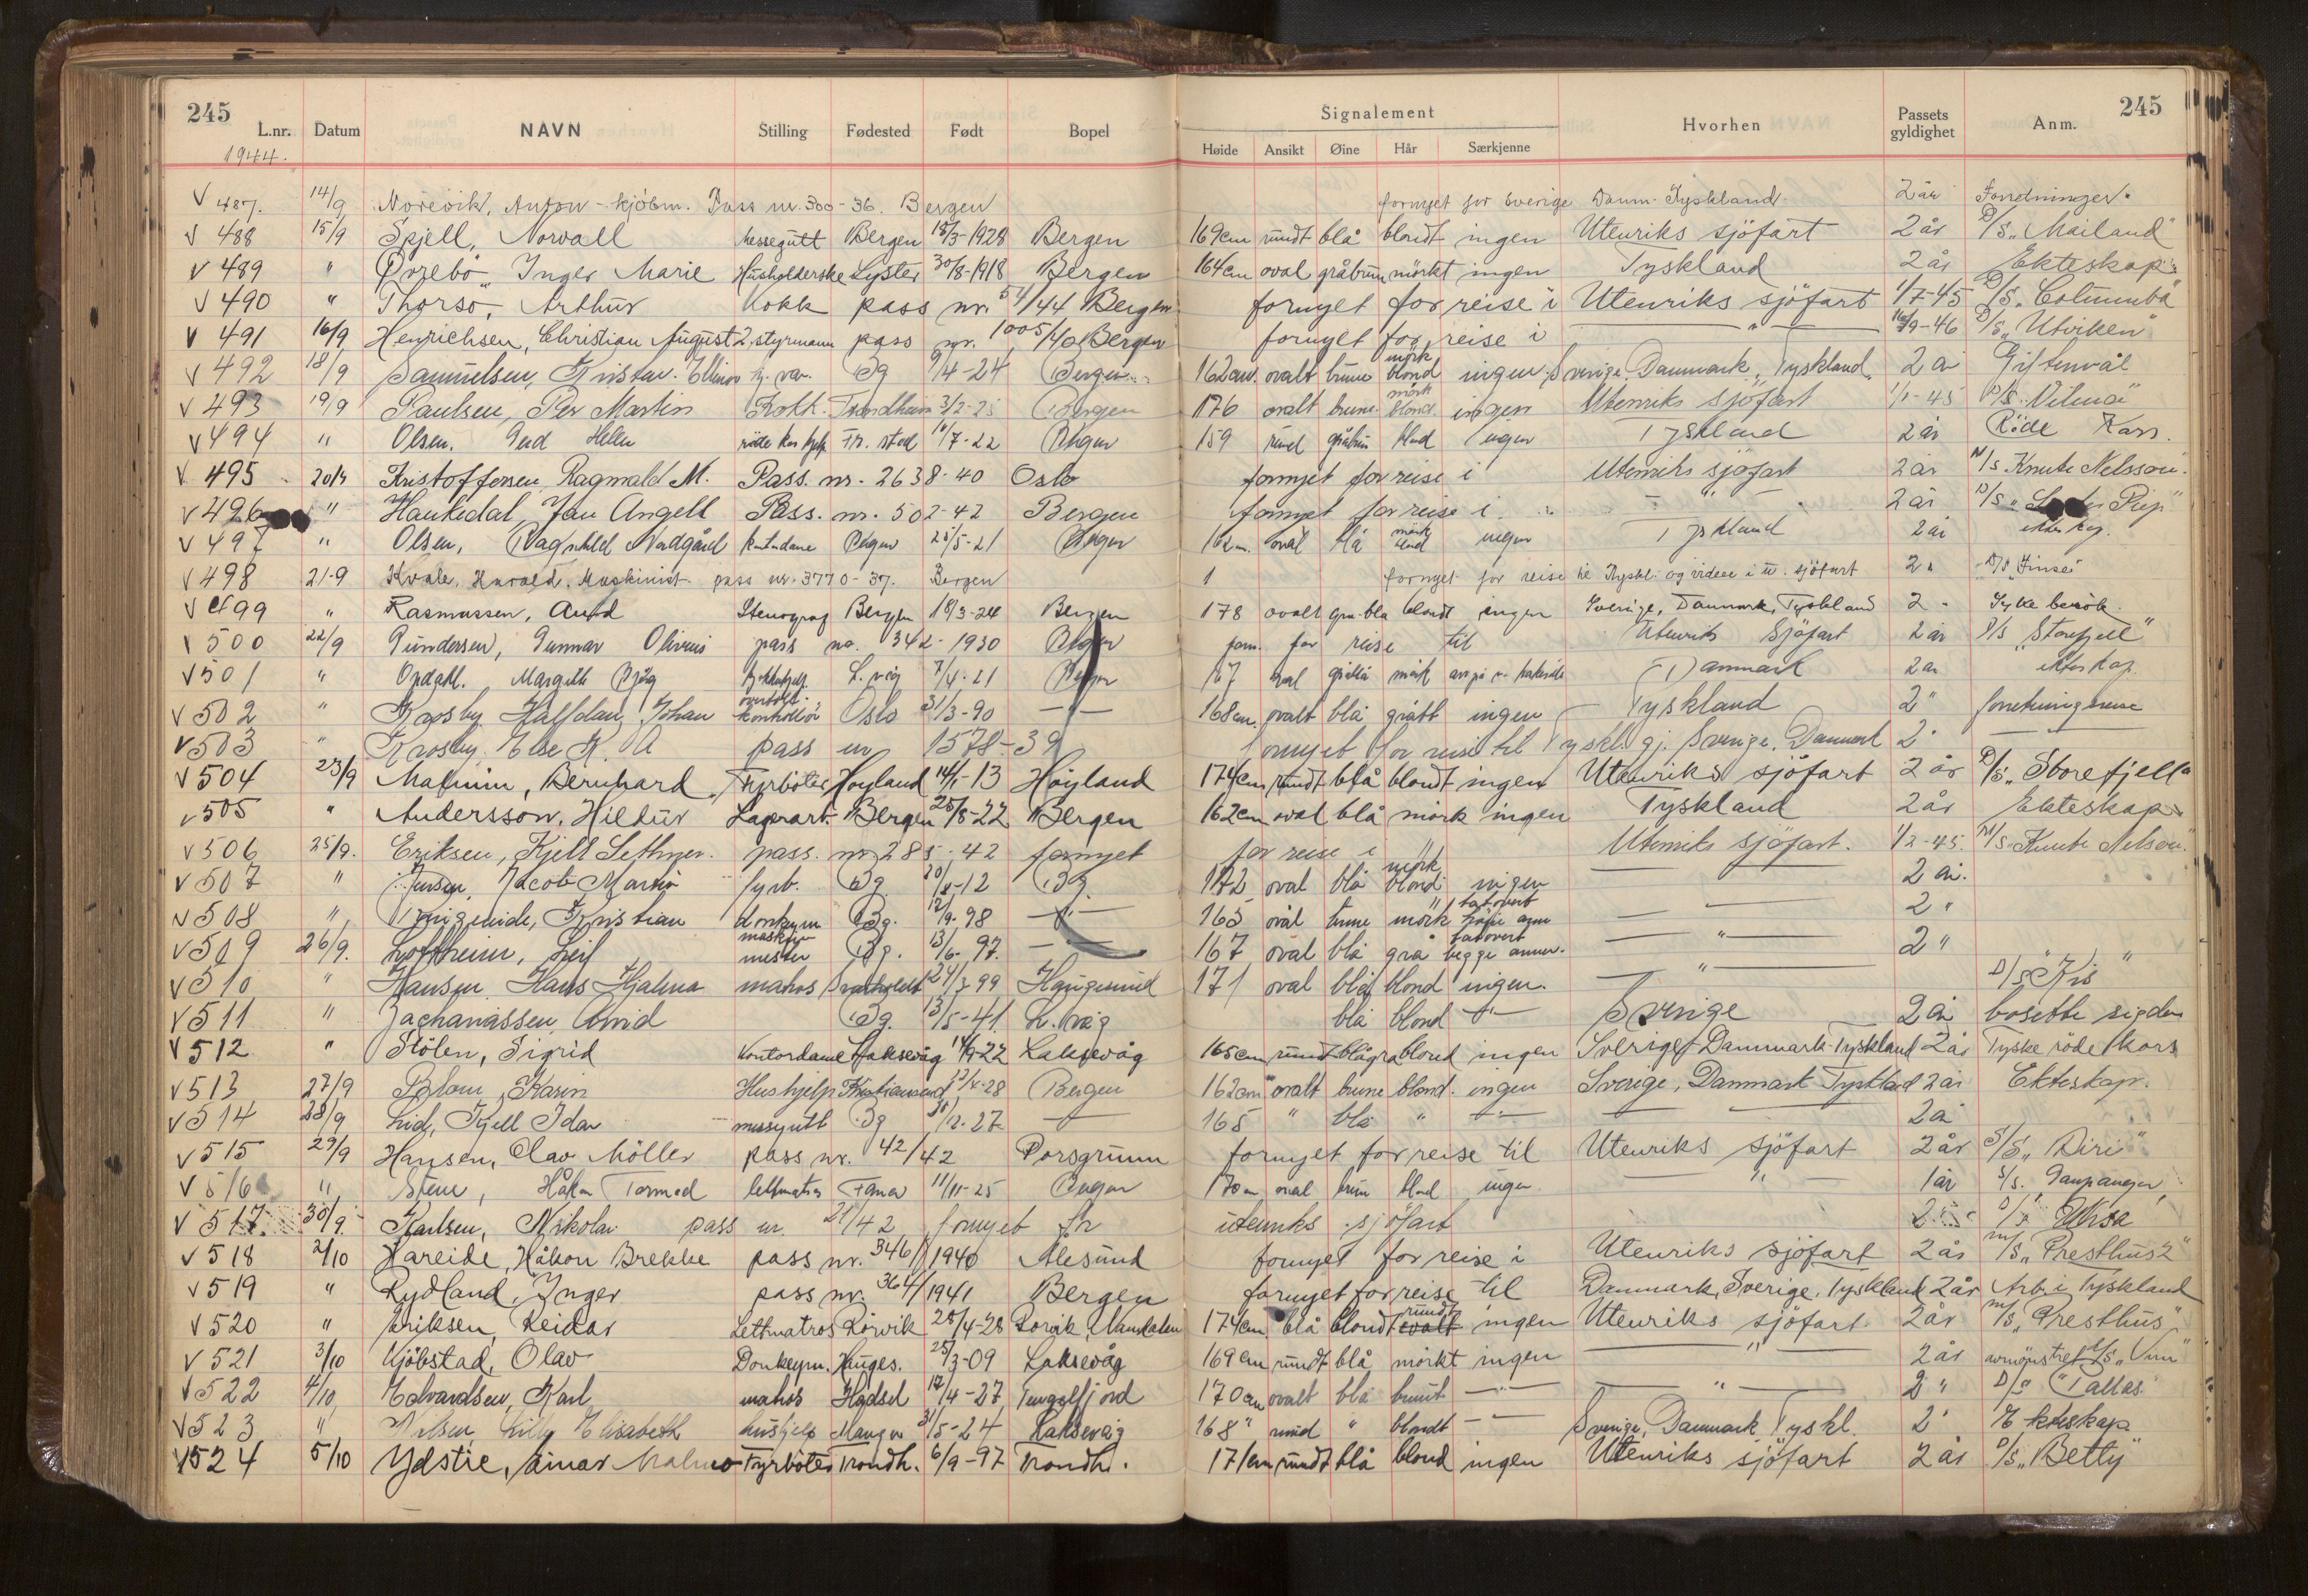 245
245
L.nr. Datum NAVN Stilling Fødested Født Bopel Signalement Hvorhen Passets gyldighet Anm.
Høide Ansikt Øine Hår Særkjenne
1944.
V 487. 14/9 Norevik, Anton - kjöbm. Pass nr. 300-36. Bergen fornyet for Sverige Danm. Tyskland. 2 år Forretninger.
V 488 15/9 Spjell, Norvall Messegutt Bergen 15/3-1928 Bergen 169cm rundt blå blondt ingen Utenriks sjöfart 2 år D/S „Mailand"
V 489 " Örrebö, Inger Marie Husholderske Lyster 30/8-1918 Bergen 164cm oval gråbrun mörkt ingen Tyskland 2 år Ekteskap
V 490 " Thorsö, Arthur Kokk pass nr. 54/44 Bergen fornyet for reise i Utenriks sjöfart 1/7-45 D/S „Columba"
V 491 16/9 Henrichsen, Christian August 2. styrmann pass nr. 1005/40 Bergen fornyet for reise i — " — 16/9-46 D/S „Utviken"
V 492 18/9 Samuelsen, Kristav. Ellinor Bg 9/4-24 Bergen 162cm. ovalt brune mörk blond ingen Sverige, Danmark, Tyskland. 2 å Giftemål
V 493 19/9 Paulsen, Per Martin Kokk. Trondheim 3/2-25 Bergen 176 ovalt brune mörk blond ingen Utenriks sjöfart 1/1-45 D/S „Vilma"
V 494 " Olsen, Gud Hellen röde kors hjelp Fr. stad 10/7-22 Bergen 159 rund gråbrun blond ingen Tyskland 2 år Röde Kors.
V 495 20/9 Kristoffersen, Ragnvald M. Pass. nr. 2638-40 Oslo fornyet for reise i Utenriks sjöfart 2 år M/S Knute Nelson".
V 496 " Haukedal, Jan Angell Pass. nr. 502-42 Bergen fornyet for reise i — " — 2 år D/S
V 497 " Olsen, Ragnhild Nordgård kontordame Bergen 25/5-21 Bergen 162m. oval blå mörk blond ingen Tyskland 2 år ekteskap.
V 498 21-9 Kvale, Harald. Maskinist pass nr. 3770-37. Bergen fornyet for reise til Tyskl. og videre i u. sjöfart 2 " D/S „Finse"
V 499 " Rasmussen, Aud Stenograf Bergen 18/3-24 Bergen 178 ovalt grå-blå blondt ingen Sverige, Danmark, Tyskland 2 - Syke besök.
V 500 22/9 Gundersen, Gunnar Olivius pass no. 342-1930 Bergen forn. for reise til Utenriks Sjöfart 2 år D/S „Storefjell"
V 501 " Opdahl, Margith Bjög L.våg 7/4-21 Bergen 167 oval gråblå mörk Danmark 2 år ekteskap.
V 502 " Krosby, Halfdan Johan overtoll-kontrollör Oslo 31/3-90 — " — 168cm. ovalt blå grått ingen Tyskland 2 " forretningsreise
V 503 " Krosby, Else K. A pass nr 1578-39 fornyet for reise til Tyskl. gj. Sverige, Danmark 2 "
V 504 23/9 Malmin, Bernhard Fyrböter Höyland 14/1-13 Höyland 174cm rundt blå blondt ingen Utenriks sjöfart 2 år D/S „Storefjell"
V 505 " Andersson, Hildur Lagerarb. Bergen 25/8-22 Bergen 162cm oval blå mörk ingen Tyskland 2 år Ekteskap
V 506 25/9. Eriksen, Kjell Sethner. pass. nr 285-42 fornyet for reise i Utenriks sjöfart. 1/2-45. M/S „Knute Nelson".
V 507 " Jensen, Jacob Martin fyrb. Bg 20/8-12 Bg 172 oval blå mörk blond ingen — " — 2 år.
V 508 " Kristian donkeym Bg. 12/9-98 — " — 165 oval brune mörk tatovert höire arm — " — 2 "
V 509 26/9. Loftheim, Leif maskinmester Bg. 13/6-97. — " — 167 oval blå grå tatovert begge armer. — " — 2 "
V 510 " Hansen, Hans Hjalmar matros 24/3 99 Haugesund 171 oval blå blond ingen. — " — D/S „Kis"
V 511 " Zachariassen, Arvid Bg. 13/5-41. L.våg blå blond — " — Sverige 2 år bosette sig der
V 512 " Stölen, Sigrid Kontordame Laksevåg 14/9-22 Laksevåg 165cm rundt blågrå blond ingen Sverige-Danmark-Tyskland 2 år Tyske röde kors
V 513 27/9 Blom, Karin Hushjelp Kristiansund 17/4-28 Bergen 162cm ovalt brune blond. ingen Sverige, Danmark Tyskland 2 år Ekteskap.
V 514 28/9 Lid, Kjell Idar messegutt Bg 30/12-27 — " — 165 " blå " — " — 2 å
V 515 29/9 Hansen, Olav Möller pass nr. 42/42 Porsgrunn fornyet for reise til Utenriks sjöfart 2 år S/S „Diri"
V 516 " Stene, Håkon Tormod lettmatros Fana 11/11-25 Bergen 170m oval brun blond ingen — " — 1 år S/S. Gaupanger
V 517. 30/9. Karlsen, Nikolai pass nr 21/42 fornyet for utenriks sjöfart
V 518 2/10 Hareide, Håkon Brekke pass nr. 346/1940 Ålesund fornyet for reise i Utenriks sjöfart 2 år M/S „Presthus"
V 519 " Rydland, Inger pass nr. 364/1941 Bergen fornyet for reise til Danmark, Sverige, Tyskland 2 år Arb. i Tyskland
V 520 " Eriksen, Reidar Lettmatros Rörvik 28/4-28 Rörvik, Namdalen 174cm blå blondt rundt ovalt ingen Utenriks sjöfart 2 år M/S „Presthus"
V 521 3/10 Kjöbstad, Olav Donkeym. Hauges. 25/3-09 Laksevåg 169cm rundt blå mörkt ingen — " — 2 år avmönstret
V 522 4/10 Edvardsen, Karl matros Hadsel 12/4-27 Tengelfjord 170cm ovalt blå brunt — " — — " — 2 " D/S „Pallas"
V 523 " Nilsen, Lilly Elisabeth hushjelp Manger 31/5-24 Laksevåg 168 " rund " blondt — " — Sverige, Danmark, Tyskl. 2 " Ekteskap
V 524 5/10 Ydstie, Einar Malmo Fyrböter Trondh. 6/9-97 Trondh. 171cm rundt blå blond ingen Utenriks sjöfart 2 år D/S „Betty"